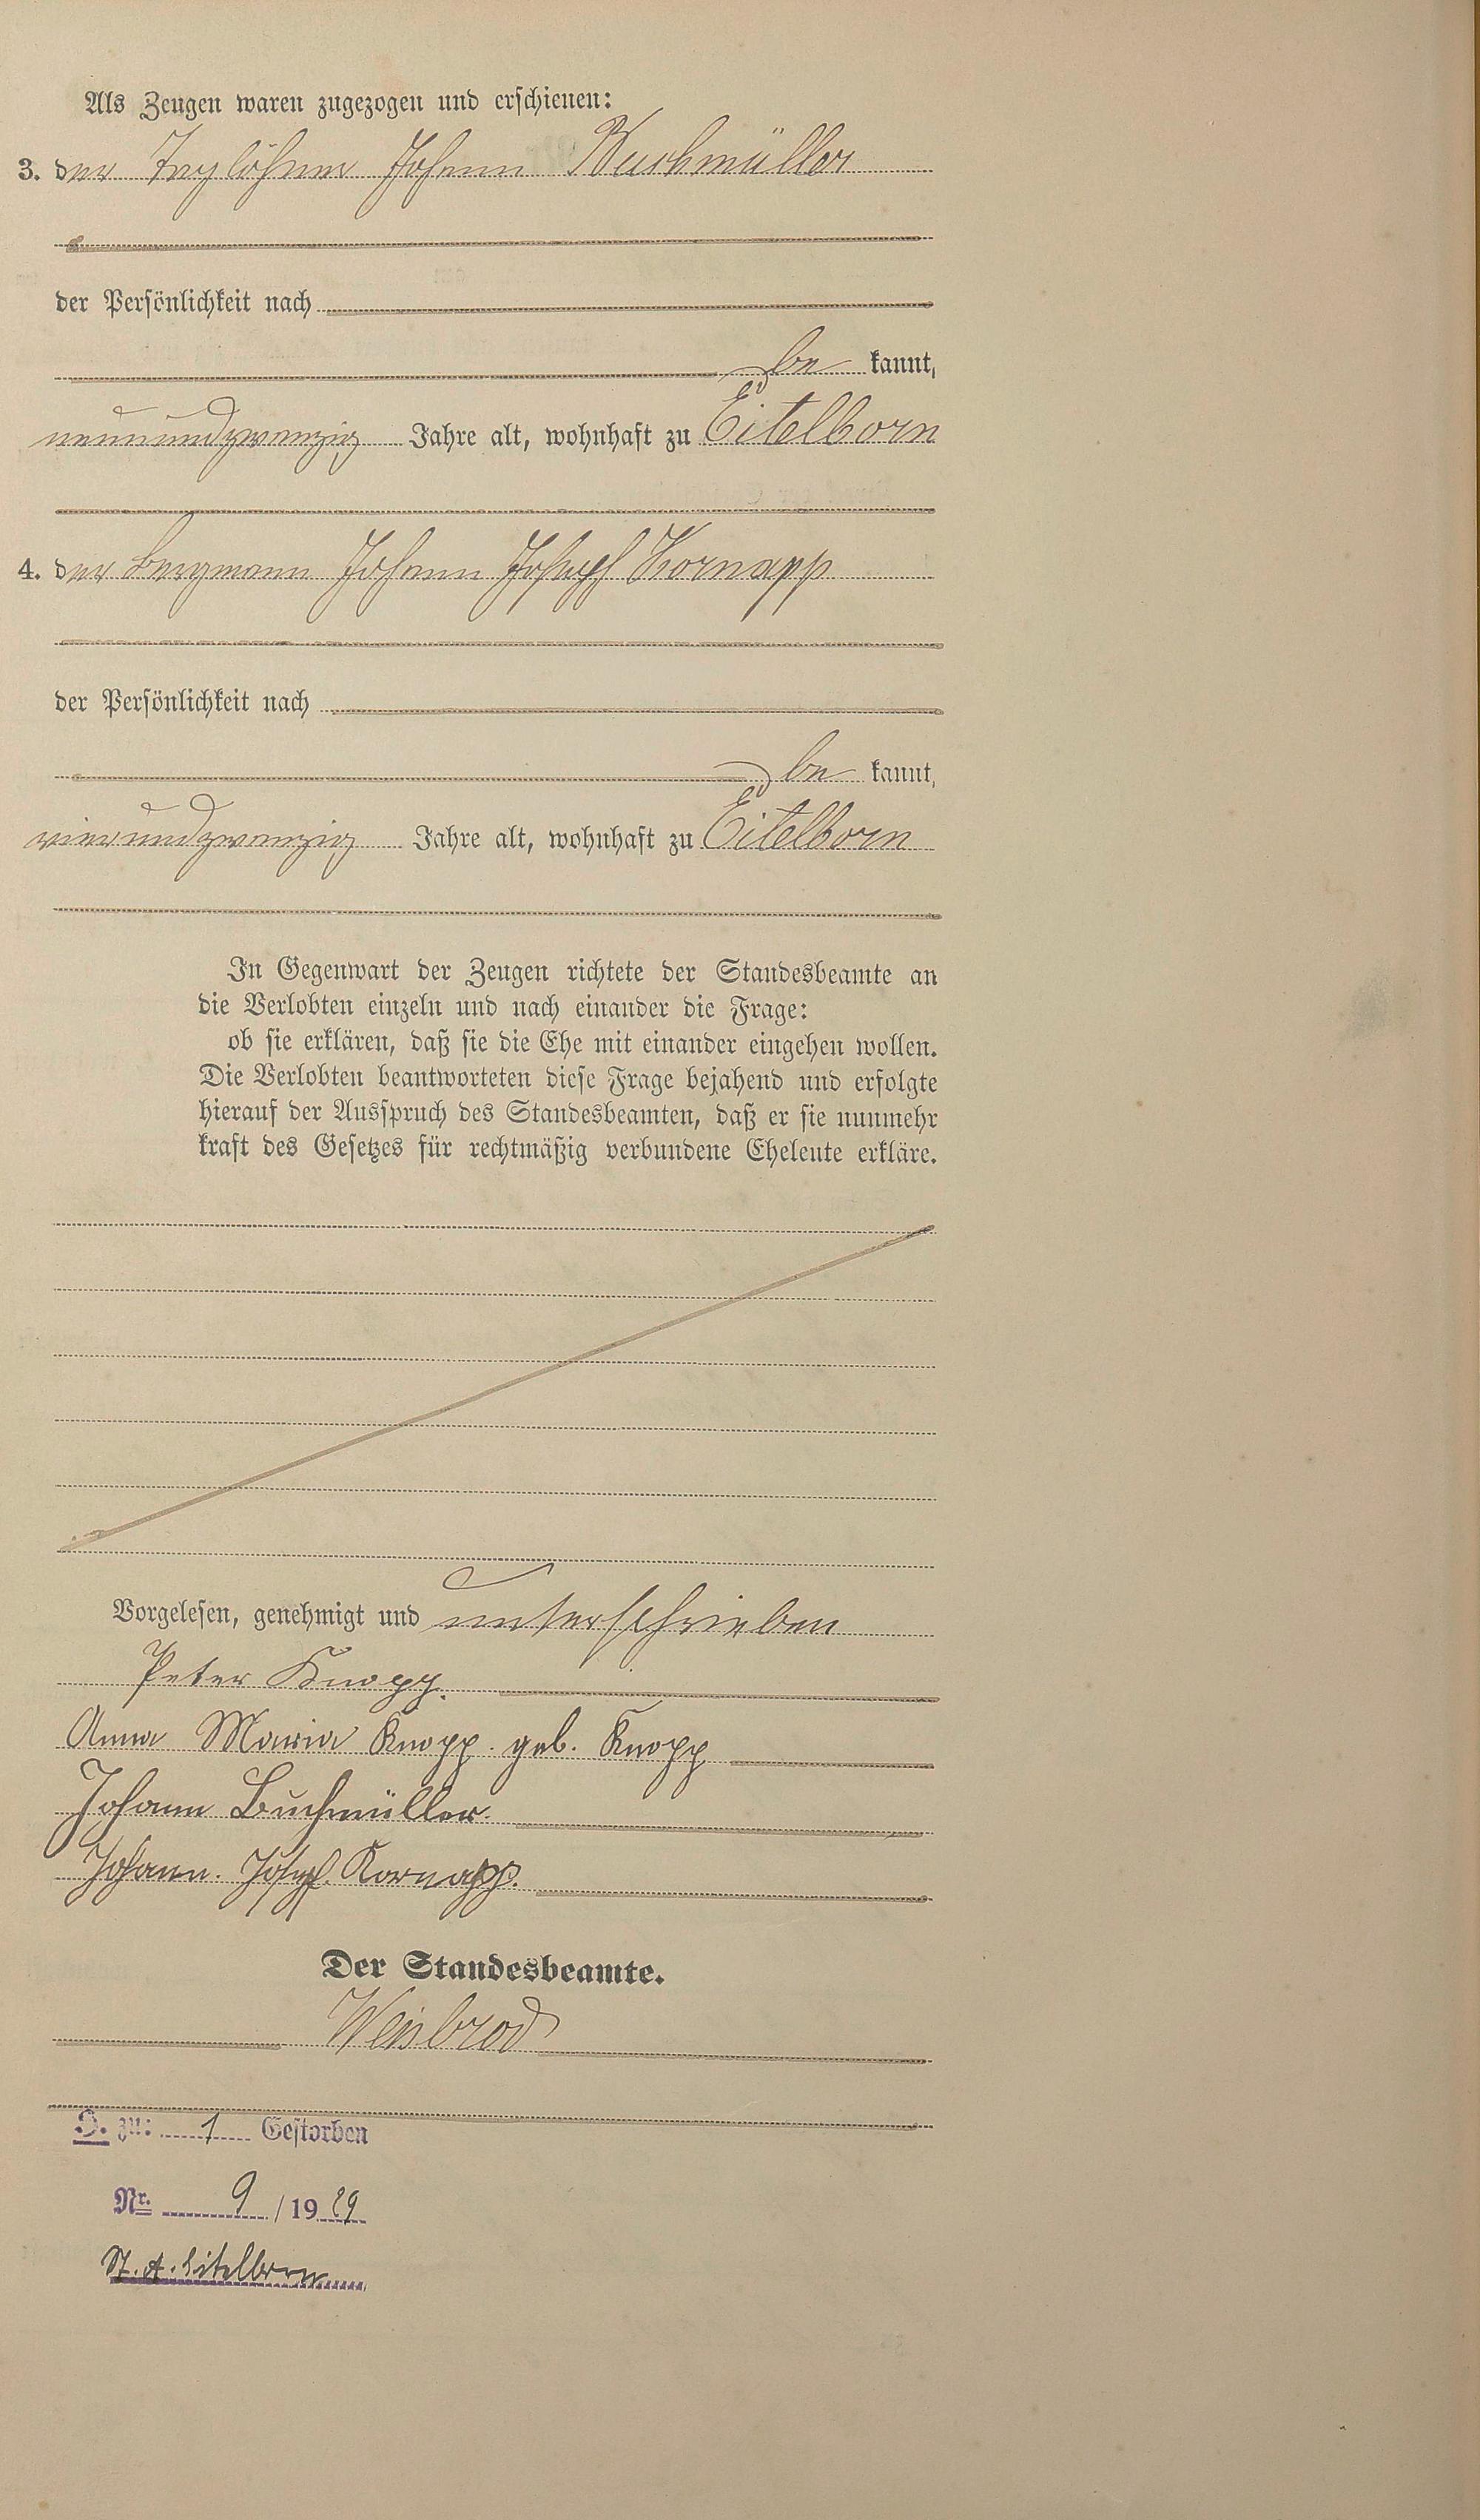 Als Zeugen waren zugezogen und erschienen:
3. der Taglöhner Johann Buchmüller
der Persönlichkeit nach
be kannt,
neunundzwanzig Jahre alt, wohnhaft zu Eitelborn
4. der Bergmann Johann Joseph Kornapp
der Persönlichkeit nach
be kannt,
vierundzwanzig Jahre alt, wohnhaft zu Eitelborn
In Gegenwart der Zeugen richtete der Standesbeamte an
die Verlobten einzeln und nach einander die Frage:
ob sie erklären, daß sie die Ehe mit einander eingehen wollen.
Die Verlobten beantworteten diese Frage bejahend und erfolgte
hierauf der Ausspruch des Standesbeamten, daß er sie nunmehr
kraft des Gesetzes für rechtmäßig verbundene Eheleute erkläre.
Vorgelesen, genehmigt und unterschrieben
Peter Knopp.
Anna Maria Knopp geb. Knopp
Johann Buchmüller.
Johann. Joseph Kornapp.
Der Standesbeamte.
Weisbrod
zu: 1 Gestorben
Nr. 9 / 19 29
St. A. Eitelborn